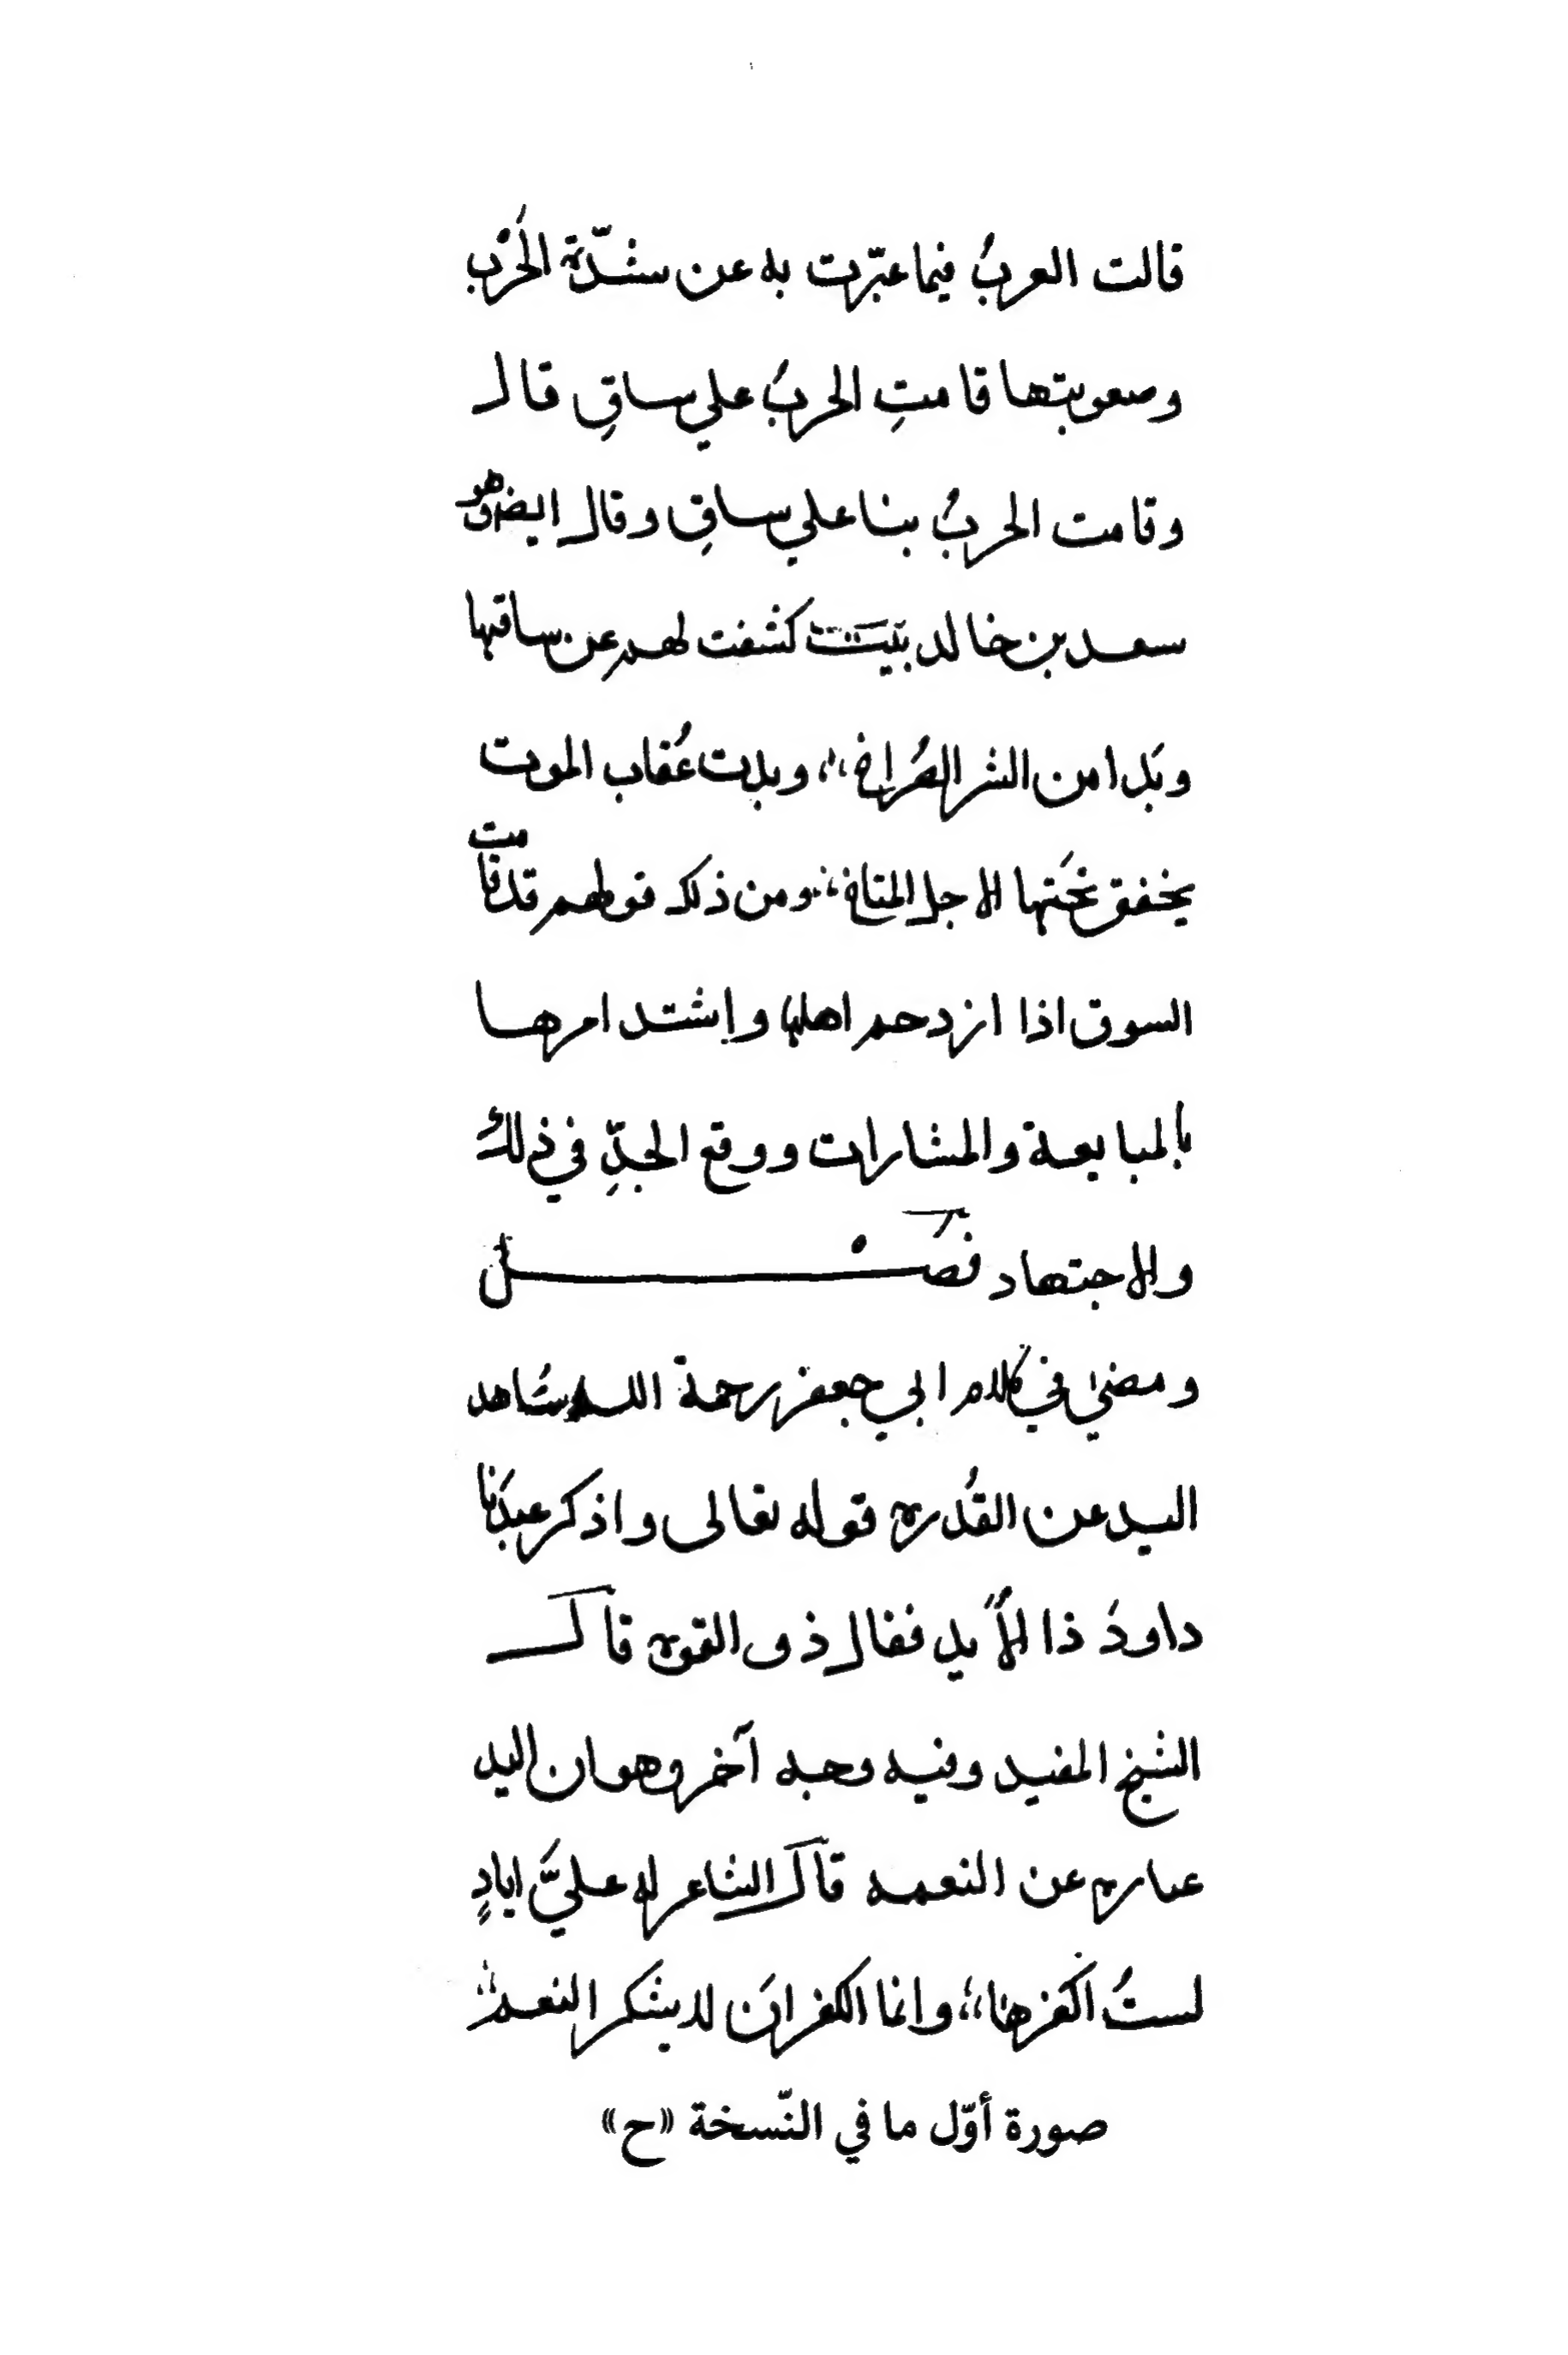 قالت العربُ فيما عبّرت به عن شدّة الحَرْب
وصعوبتها قامتِ الحربُ علي ساقٍ قال
وقامت الحربُ بنا علي ساقٍ وقال ايضا وهو
سعد بن خالد بَيت كشفت لهم عن ساقها
وبَدا من الشر الصُراخ ،، وبدت عُقاب الموت
يخفق تحَتها الاجل المتاخ ،، ومن ذلك قولهم قد قامت
السوق اذا ازدحم اهلها واشتد امرها
بالمبايعة والمشارات ووقع الجدِّ في ذلك
والاجتهاد فَصْل
ومضي في كلام ابي جعفر رحمة الله شاهد
اليد عن القُدرة قوله تعالى واذكر عبدَنا
داودَ ذا الأَيد فقال ذو القوة قال
الشيخ المفيد وفيه وجه آخر وهو ان اليد
عبارة عن النعمه قال الشاعر له عليَّ ايادٍ
لستُ اكَفرها ،، وانما الكفرانَ لا يشكر النعم
صورة أوّل ما في النّسخة «ح»